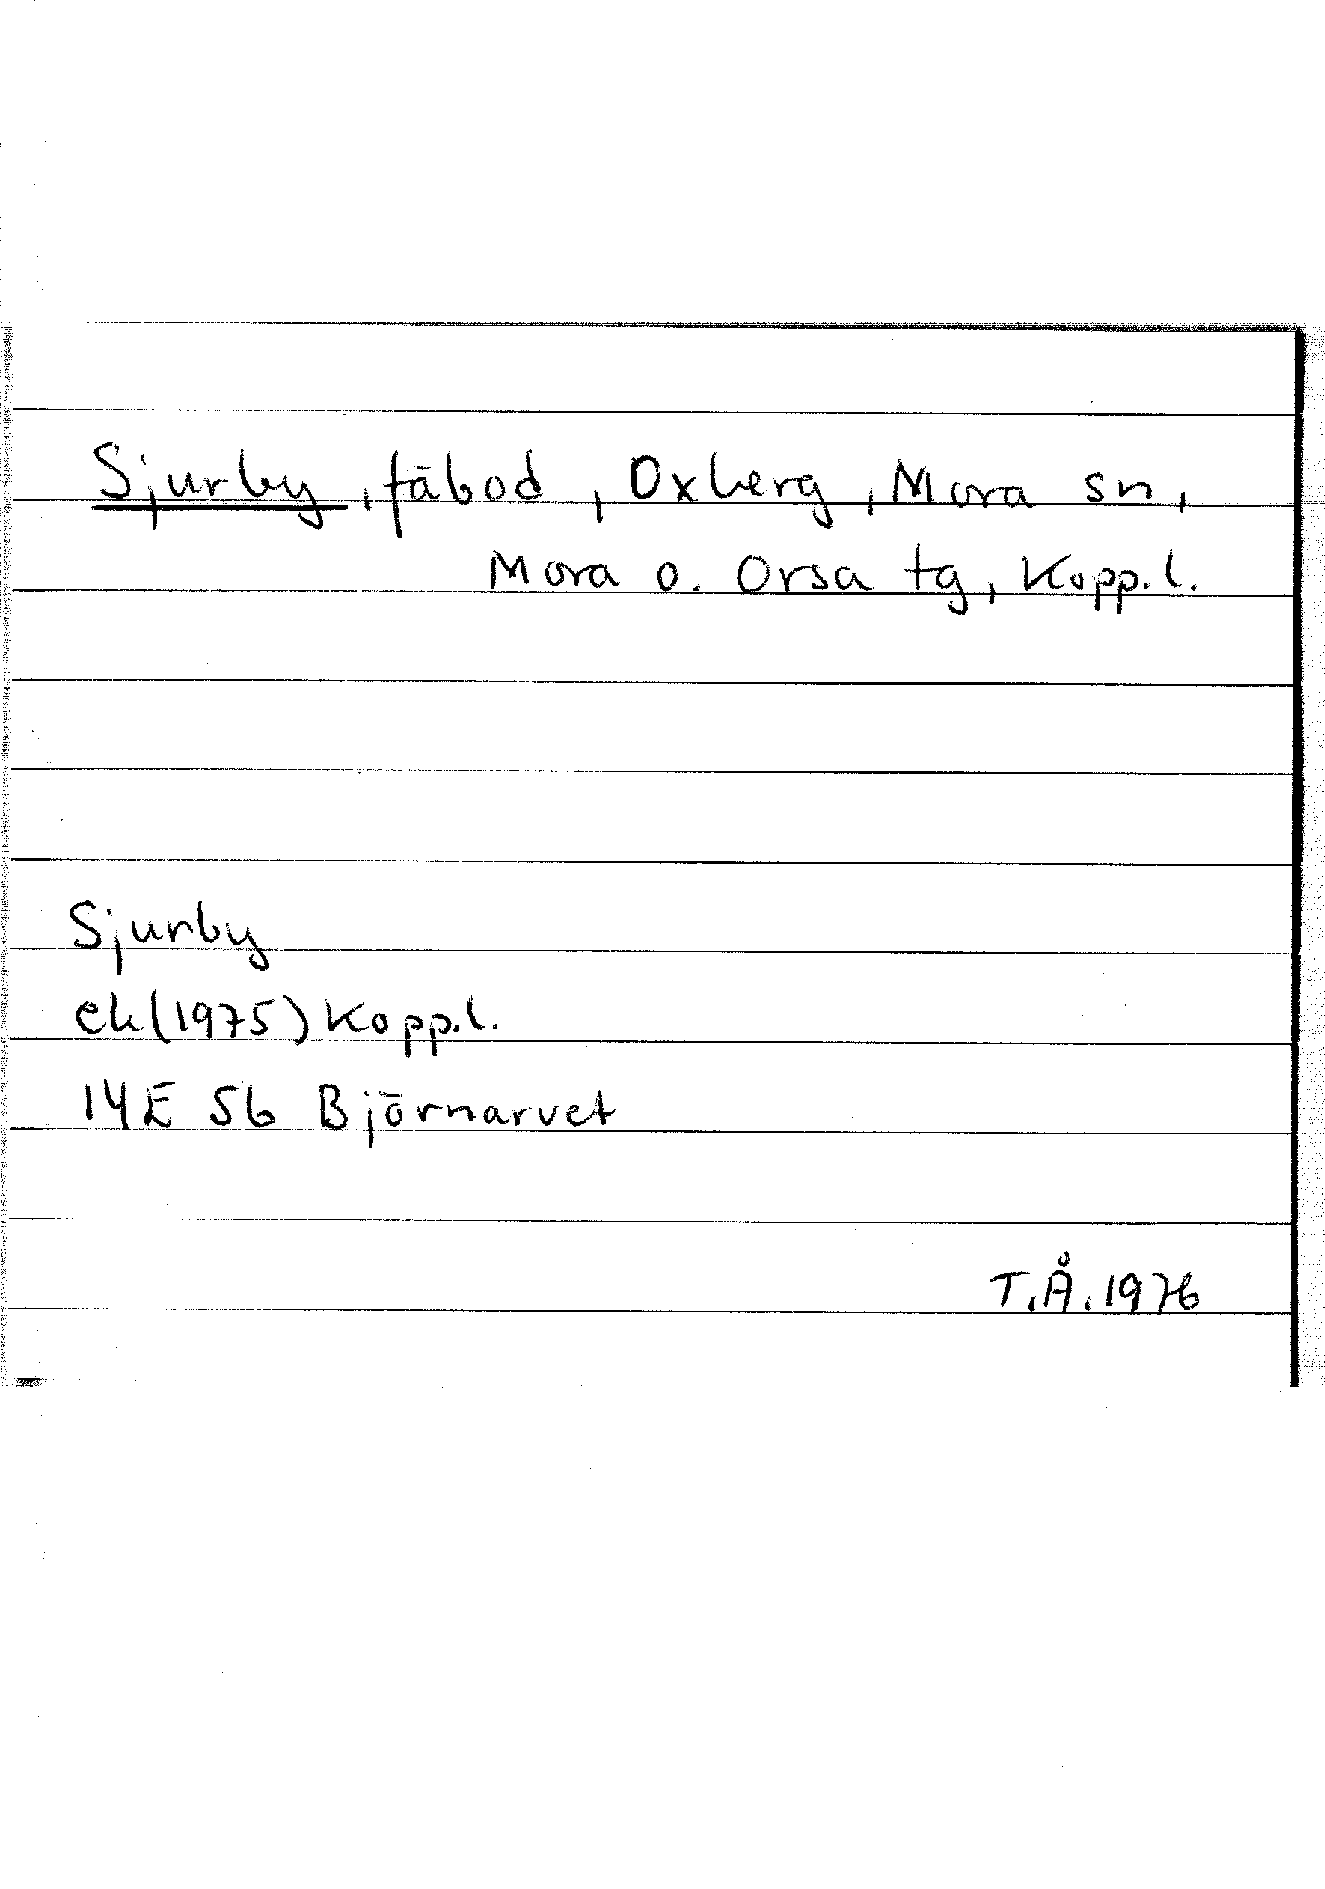 Sjurby, fäbod, Oxberg, Mora sn,
Mora o. Orsa tg, Kopp.l.
Sjurby
ek (1975) Kopp.l.
14E 5b Björnarvet
T.Å. 1976